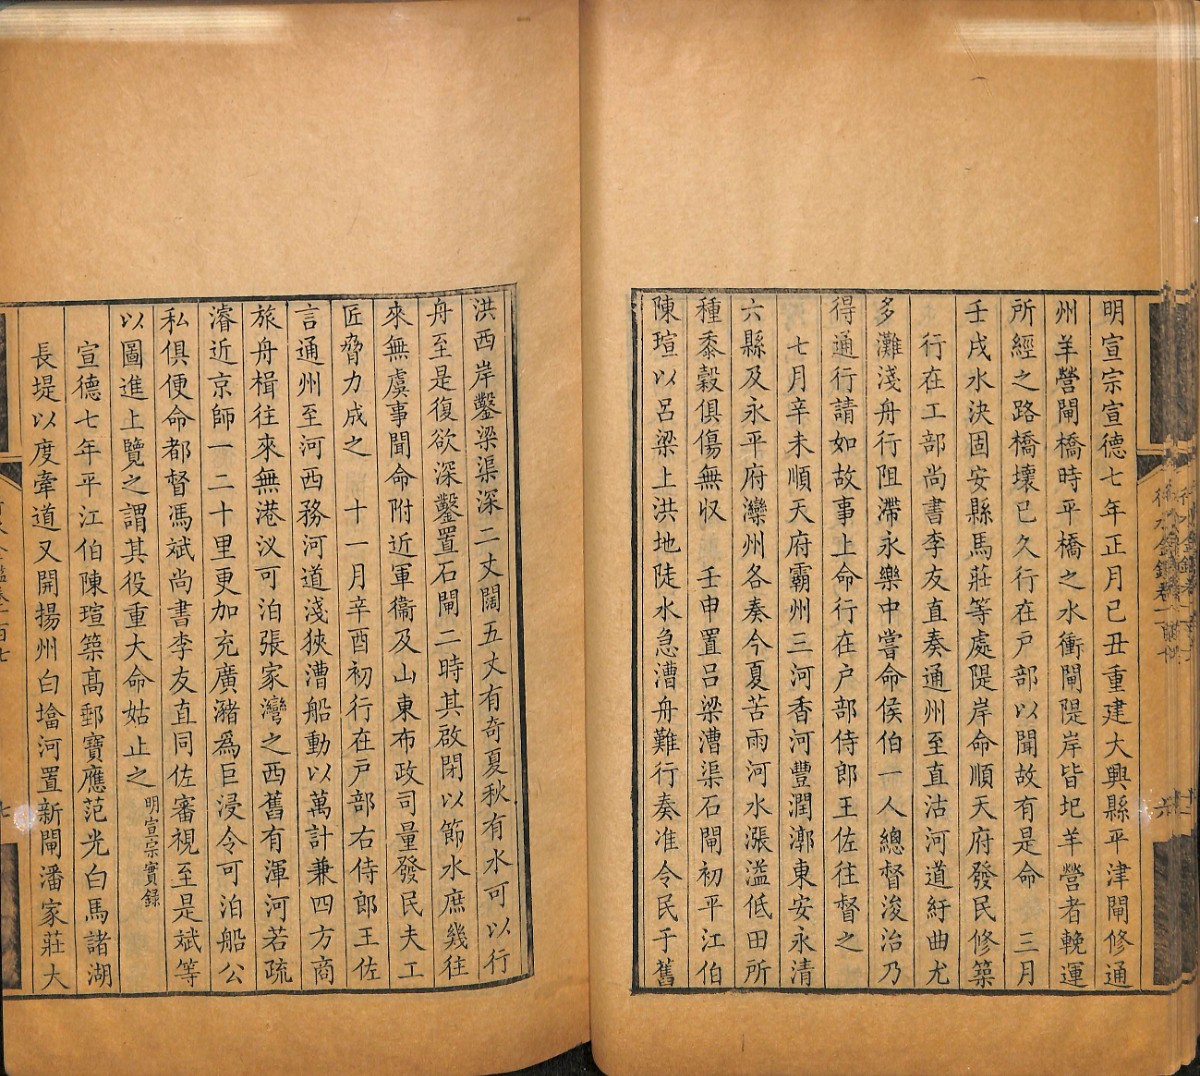 明宣宗宣德七年正月已丑重建大興縣平津閘修通
州羊營閘橋時平橋之水衝閘隄岸皆圯羊營者輓運
所經之路橋壞已久行在戸部以聞故有是命　三月
壬戌水決固安縣馬莊等處隄岸命順天府發民修築
行在工部尚書李友直奏通州至直沽河道紆曲尤
多灘淺舟行阻滯永樂中嘗命侯伯一人總督浚治乃
得通行請如故事上命行在戸部侍郎王佐往督之
七月辛未順天府霸州三河香河豐潤漷東安永清
六縣及永平府灤州各奏今夏苦雨河水漲溢低田所
種黍穀俱傷無收　壬申置呂梁漕渠石閘初平江伯
陳瑄以呂梁上洪地陡水急漕舟難行奏准令民于舊
洪西岸鑿梁渠深二丈闊五丈有奇夏秋有水可以行
舟至是復欲深鑿置石閘二時其啟閉以節水庶幾往
來無虞事聞命附近軍衞及山東布政司量發民夫工
匠脅力成之　十一月辛酉初行在戸部右侍郎王佐
言通州至河西務河道淺狹漕船動以萬計兼四方商
旅舟楫往來無港汊可泊張家灣之西舊有渾河若疏
濬近京師一二十里更加充廣瀦爲巨浸令可泊船公
私俱便命都督馮斌尚書李友直同佐審視至是斌等
以圖進上覽之謂其役重大命姑止之 明宣宗實録
宣德七年平江伯陳瑄築高郵寶應范光白馬諸湖
長堤以度牽道又開揚州白塔河置新閘潘家莊大